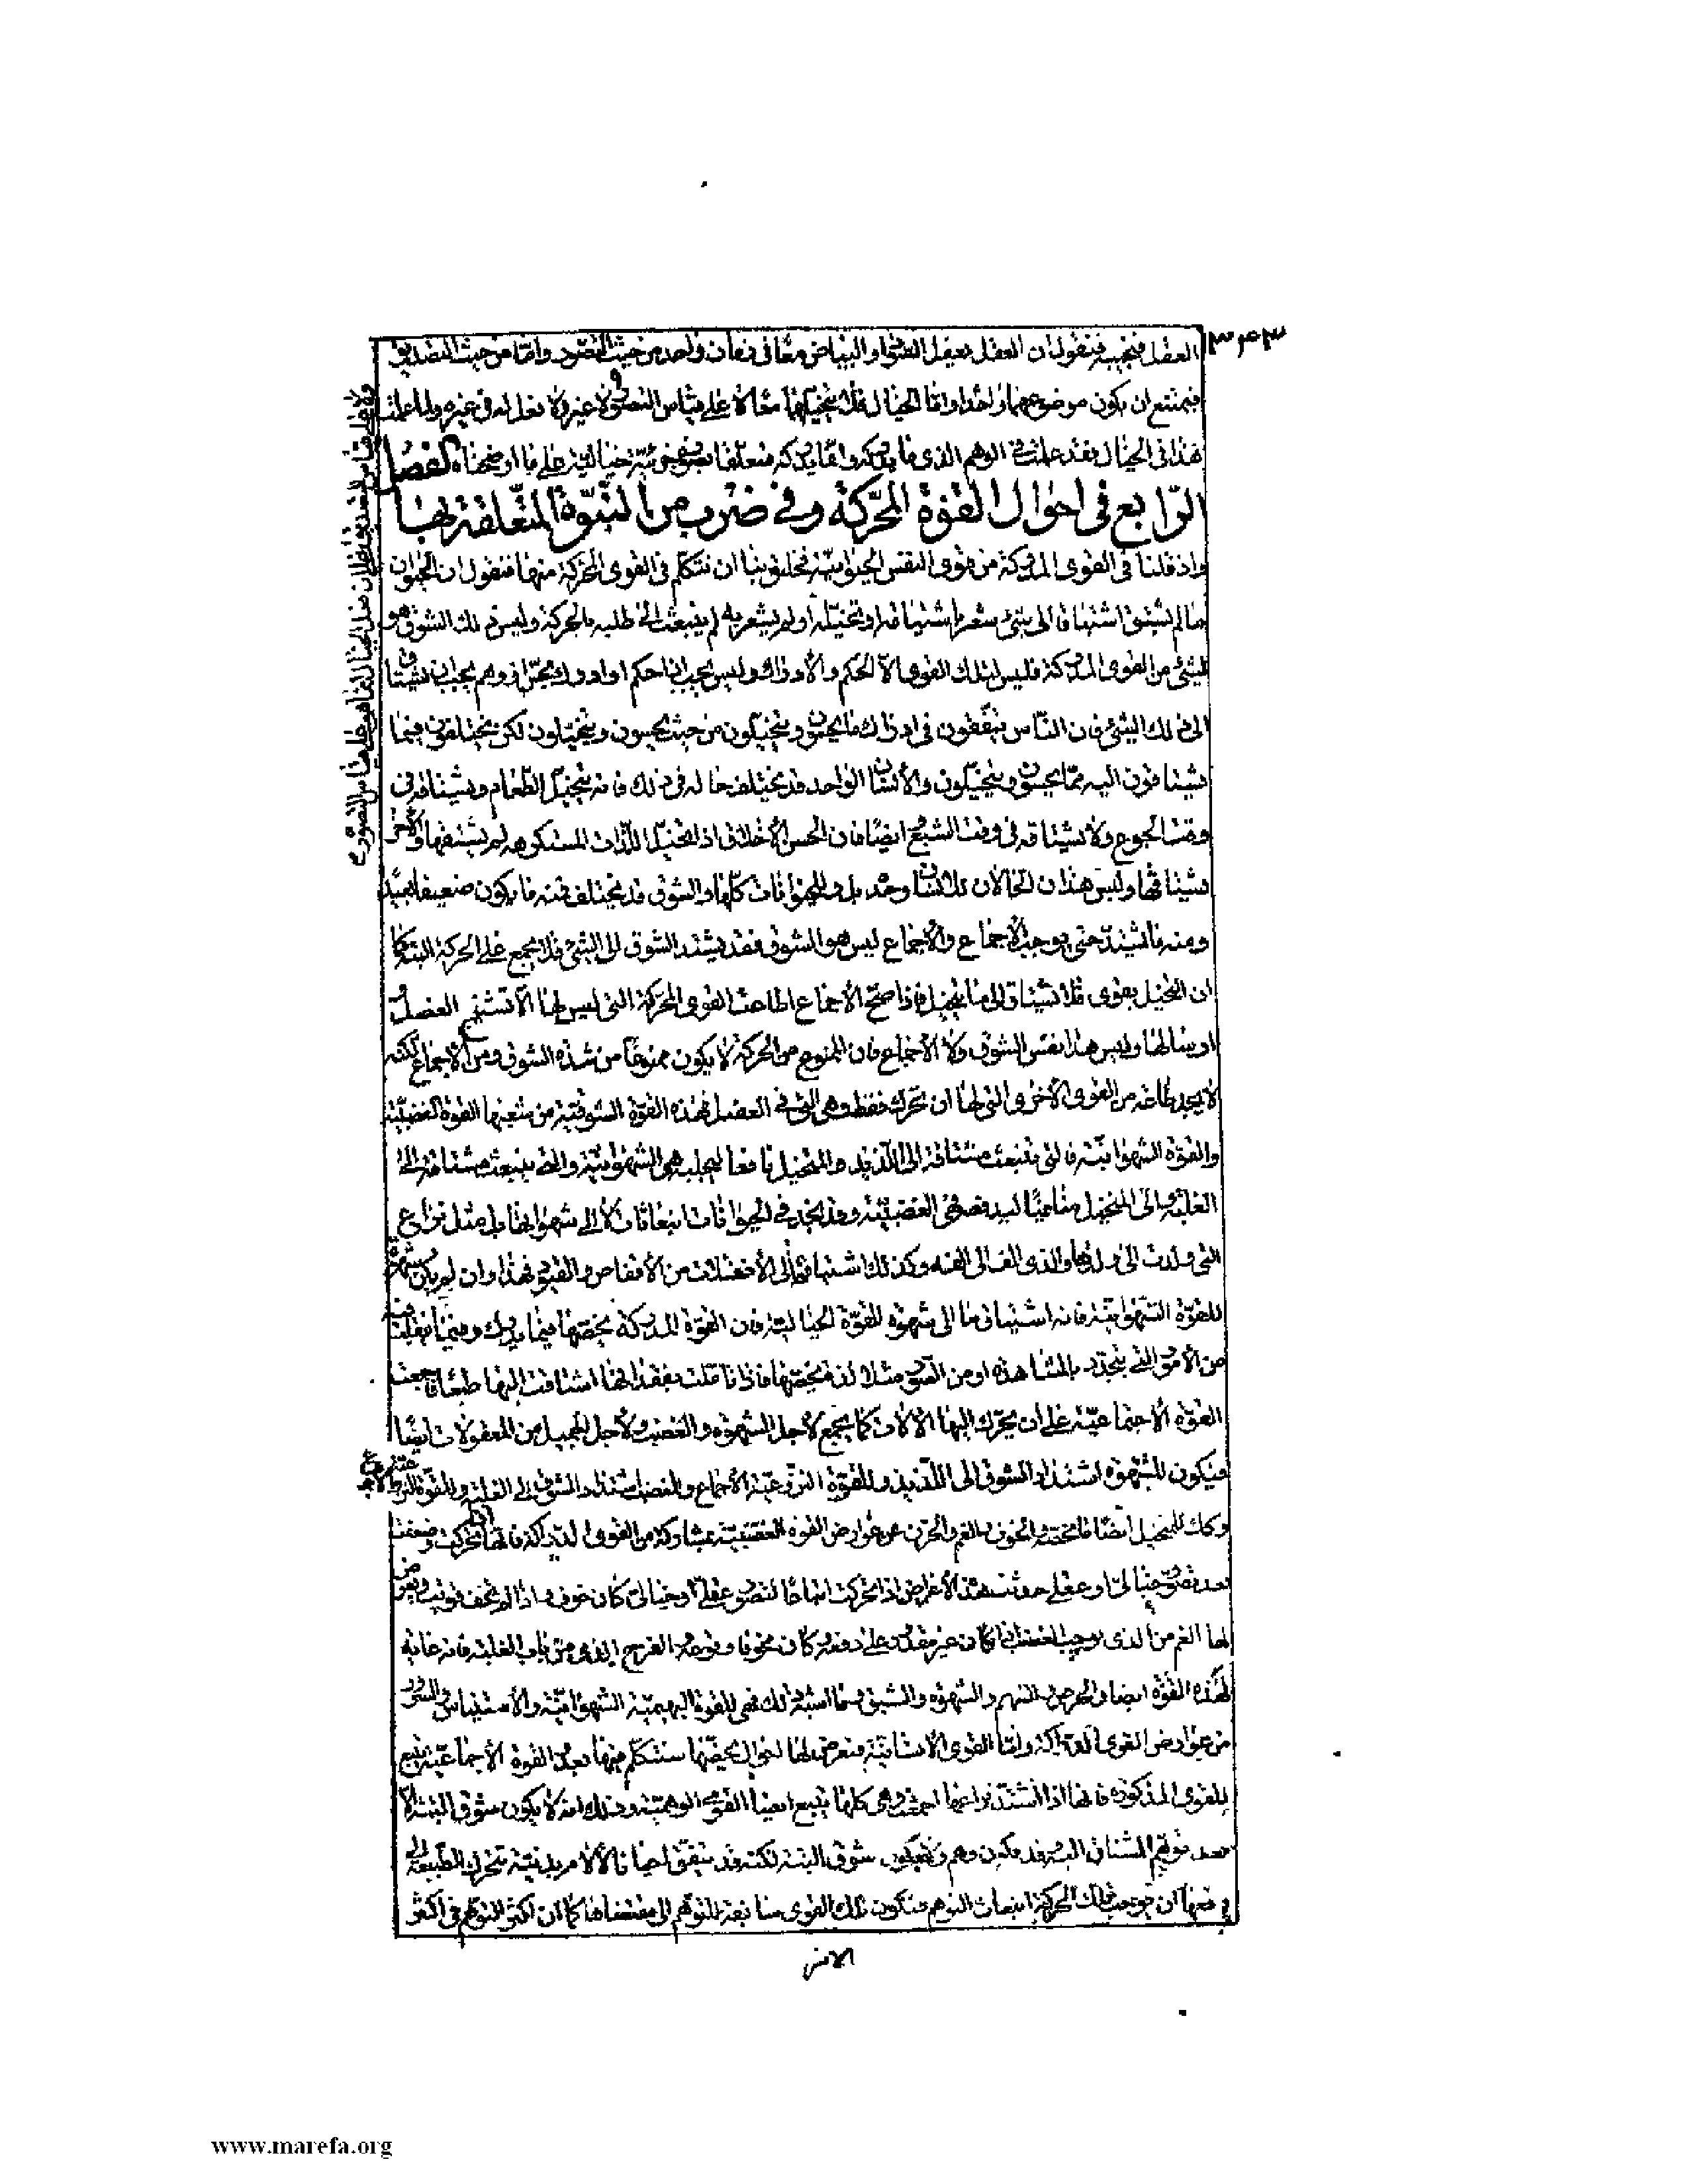 ٣٤٣
العقل فنجيبه فنقول ان العقل يعقل السواد والبياض معا فى زمان واحد من حيث التصور واما من حيث التصديق
فيمتنع ان يكون موضوعهما واحدا واما الخيال فلا يتخيلهما معا لا على قياس التصور ولا غيره ولا فعل له فى غيره ولما علمت
هذا فى الخيال فقد علمت فى الوهم الذى ما يدركه وانما يدركه متعلقا بصورة جزئية خيالية على ما اوضحناه الفصل
الرابع فى احوال القوة المحركة وفى ضرب من النبوة المتعلقة بها
واذ قلنا فى القوى المدركة من قوى النفس الحيوانية فخليق بنا ان نتكلم فى القوى المحركة منها فنقول ان الحيوان
ما لم يشتق اشتياقا الى شئ شعر باشتياقه او تخيله او لم يشعر به لم ينبعث الى طلبه بالحركة وليس ذلك الشوق هو
لشئ من القوى المدركة فليس لتلك القوى الا الحكم والادراك وليس يجب اذا حكم او ادرك بحس او وهم يجب ان يشتاق
الى ذلك الشئ فان الناس يتفقون فى ادراك ما يحسون ويتخيلون من حيث يحسون ويتخيلون لكن يختلفون فيما
يشتاقون اليه مما يحسون ويتخيلون والانسان الواحد قد يختلف حاله فى ذلك فانه يتخيل الطعام ويشتاقه فى
وقت الجوع ولا يشتاقه فى وقت الشبع ايضا فان الحسن الاخلاق اذا تخيل اللذات المستكرهه لم يشتقها والاخر
يشتاقها وليس هذان الحالان للانسان وحده بل وللحيوانات كلها والشوق قد يختلف فمنه ما يكون ضعيفا بعد
ومنه ما يشتد حتى يوجب الاجماع والاجماع ليس هو الشوق فقد يشتد الشوق الى الشئ فلا يجمع على الحركة البتة كما
ان التخيل يقوى فلا يشتاق الى ما يتخيل فاذا صح الاجماع اطاعت القوى المحركة التى ليس لها الا تشنيج العضل
او ارسالها وليس هذا نفس الشوق ولا الاجماع فان الممنوع من الحركة لا يكون ممنوعا من شدة الشوق ومن الاجماع لكنه
لا يجد طاعة من القوى الاخرى التى لها ان تحرك فقط وهى التى فى العضل فهذه القوة الشوقية من شعبها القوة الغضبية
والقوة الشهوانية فالتى تنبعث مشتاقة الى اللذيذ والمتخيل نافعا ليجلبه هى الشهوانية والتى ينبعث مشتاقة الى
الغلبة والى المتخيل منافيا ليدفعه هى الغضبية وقد نجد فى الحيوانات انبعاثات لا الى شهواتها بل مثل نزاع
التى ولدت الى ولدها والذى الف الى الفه وكذلك اشتياقها الى الانفلات من الاقفاص والقيود فهذا وان لم يكن شهوة
للقوة الشهوانية فانه اشتياق ما الى شهوة للقوة الخيالية فان القوة المدركة يخصها فيما يدرك وفيما
من الامور التى يتجدد بالمشاهدة او من الصور مثلا لذة تخصها فاذا تالمت بفقدانها اشتاقت اليها طبعا فاجمعت
القوة الاجماعية على ان يحرك اليها الالات كما يجمع لاجل الشهوة والغضب ولاجل الجميل من المعقولات ايضا
فيكون للشهوة اشتداد الشوق الى اللذيذ وللقوة النزوعية الاجماع وللغضب اشتداد الشوق الى الغلبة وللقوة النزوعية الاجماع
وكك للتخيل ايضا ما يخصه والخوف والغم والحزن من عوارض القوة الغضبية بمشاركة من القوى الدراكة فانها اذا تحركت وضعفت
بعد تصور خيالى او عقلى حدثت هذه الاعراض اذا تحركت اتباعا لتصور عقلى او خيالى كان خوف واذا لم تخف قويت ويعرض
لها الغم من الذى يوجب الغضب اذا كان غير مقدور على دفعه او كان مخوفا وقوعه والفرح الذى من باب الغلبة فانه غاية
لهذه القوة ايضا والحرص والنهم والشهوة والشبق وما اشبه ذلك فهى للقوة البهيمية الشهوانية والاستيناس والسرور
من عوارض القوى الدراكة واما القوى الانسانية فتعرض لها احوال يخصها سنتكلم فيها بعد القوة الاجماعية تتبع
للقوى المذكورة فانها اذا اشتد نزاعها اجمعت وهى كلها يتبع ايضا القوى الوهمية وذلك انه لا يكون شوق البتة الا
بعد توهم المشتاق اليه وقد يكون وهم ولا يكون شوق البتة لكنه قد يتفق احيانا لالام بدنية تتحرك الطبيعة الى
دفعها ان توجب تلك الحركة انبعاث التوهم فيكون تلك القوى سابقة للتوهم الى مقتضاها كما ان اكثر التوهم فى اكثر
الامر
ولا على قياس التصديق فان هذا الخيال على قياس التصور ع
www.marefa.org